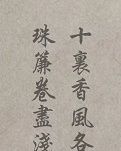 十裏香風各
珠簾卷盡淺